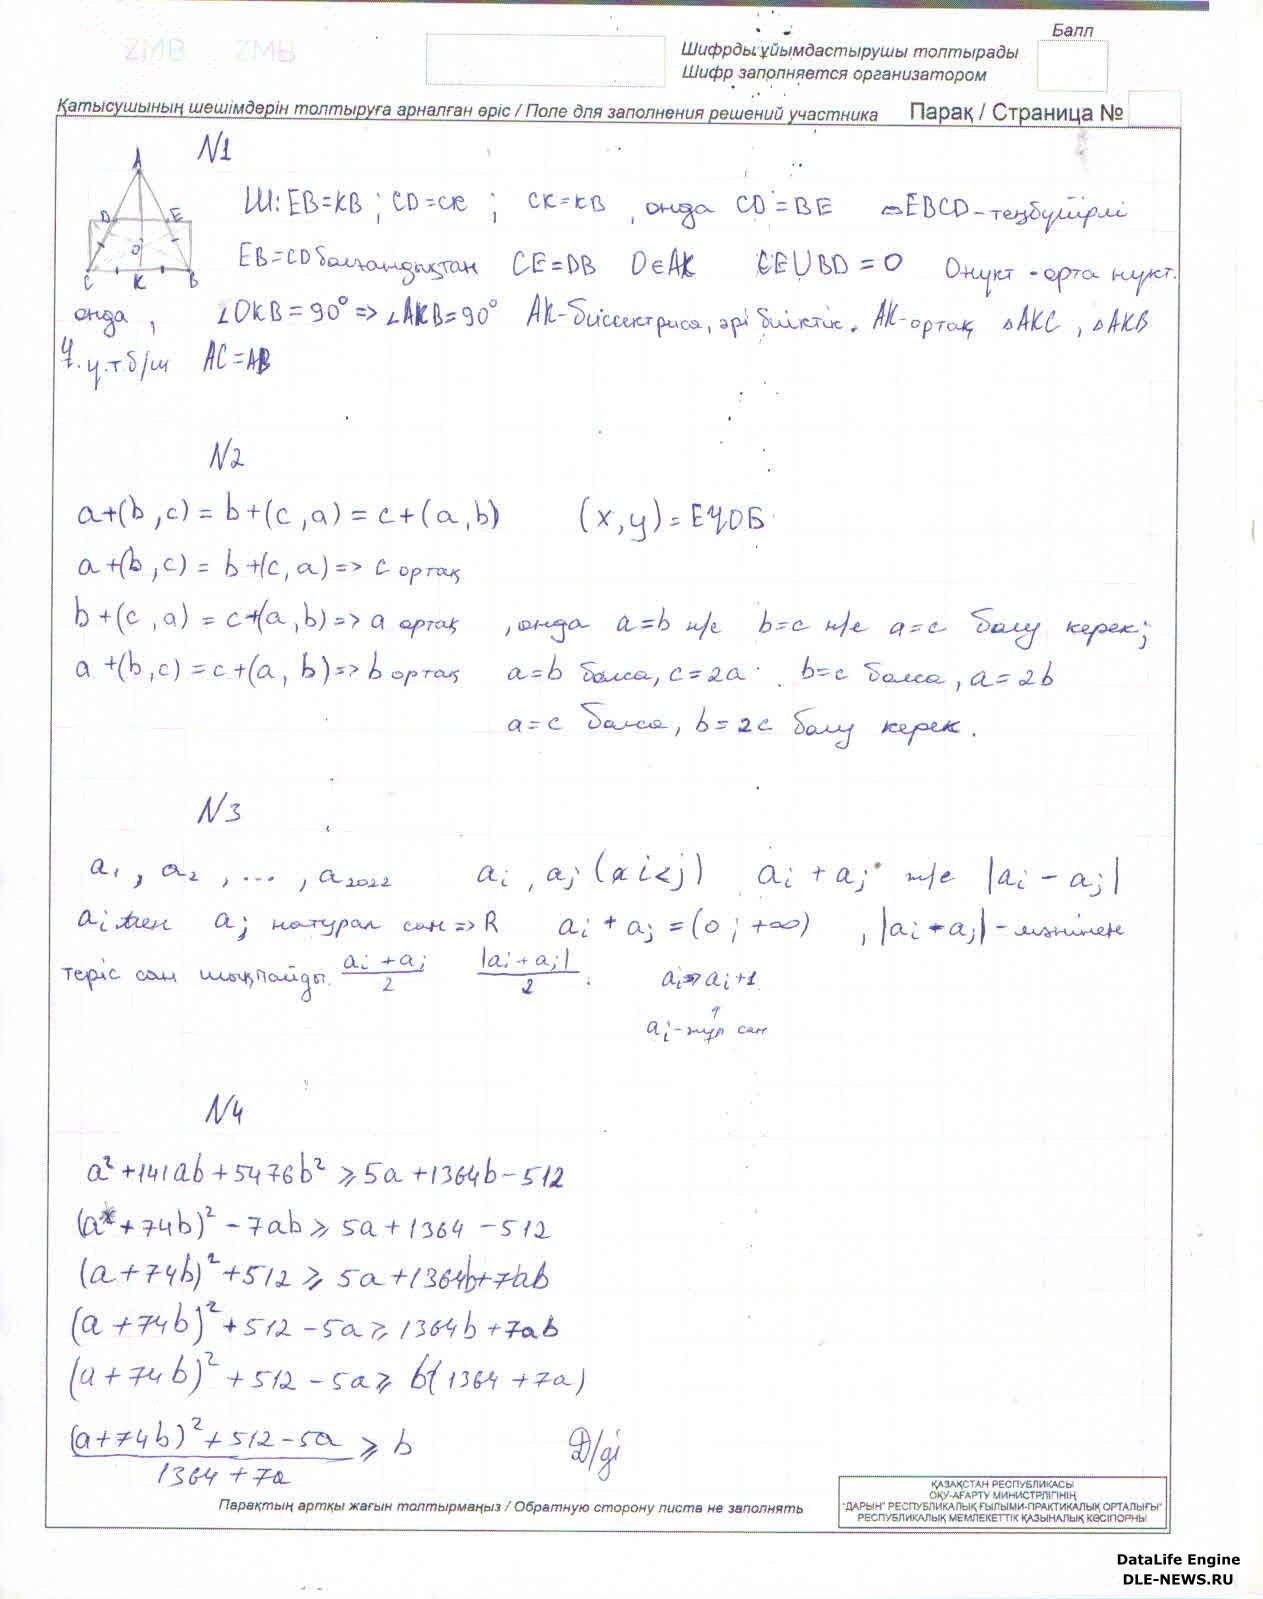 ZMB ZMB
Балл
Шифрды ұйымдастырушы толтырады
Шифр заполняется организатором
Қатысушының шешімдерін толтыруға арналған өріс / Поле для заполнения решений участника Парақ / Страница №
N1
A
D E
O
C K B
Ш: EB=KB ; CD=CK ; CK=KB , онда CD=BE EBCD-теңбүйірлі
EB=CD болғандықтан CE=DB O∈AK CE∪BD=O O нүкт - орта нүкт.
онда , ∠OKB=90° => ∠AKB=90° AK-биссектриса, әрі биіктік. AK-ортақ △AKC , △AKB
ү.т.б/ш AC=AB
N2
a+(b,c)=b+(c,a)=c+(a,b) (x,y)=ЕҮОБ
a+(b,c)=b+(c,a)=> c ортақ
b+(c,a)=c+(a,b)=> a ортақ , онда a=b н/е b=c н/е a=c болу керек;
a+(b,c)=c+(a,b)=> b ортақ a=b болса, c=2a b=c болса, a=2b
a=c болса, b=2c болу керек.
N3
a1, a2, ..., a2022 ai, aj (i<j) ai+aj н/е |ai-aj|
ai мен aj натурал сан => R ai+aj=(0;+∞) , |ai-aj| - мәнінен
теріс сан шықпайды. ai+aj/2 |ai+aj|/2 . ai+1
ai-жұп сан
N4
a²+141ab+5476b²⩾5a+1364b-512
(a+74b)²-7ab⩾5a+1364-512
(a+74b)²+512⩾5a+1364b+7ab
(a+74b)²+512-5a⩾1364b+7ab
(a+74b)²+512-5a⩾b(1364+7a)
(a+74b)²+512-5a ⩾ b Д/ді
1364+7a
Парақтың артқы жағын толтырмаңыз / Обратную сторону листа не заполнять
ҚАЗАҚСТАН РЕСПУБЛИКАСЫ
ОҚУ-АҒАРТУ МИНИСТРЛІГІНІҢ
"ДАРЫН" РЕСПУБЛИКАЛЫҚ ҒЫЛЫМИ-ПРАКТИКАЛЫҚ ОРТАЛЫҒЫ"
РЕСПУБЛИКАЛЫҚ МЕМЛЕКЕТТІК ҚАЗЫНАЛЫҚ КӘСІПОРНЫ
DataLife Engine
DLE-NEWS.RU